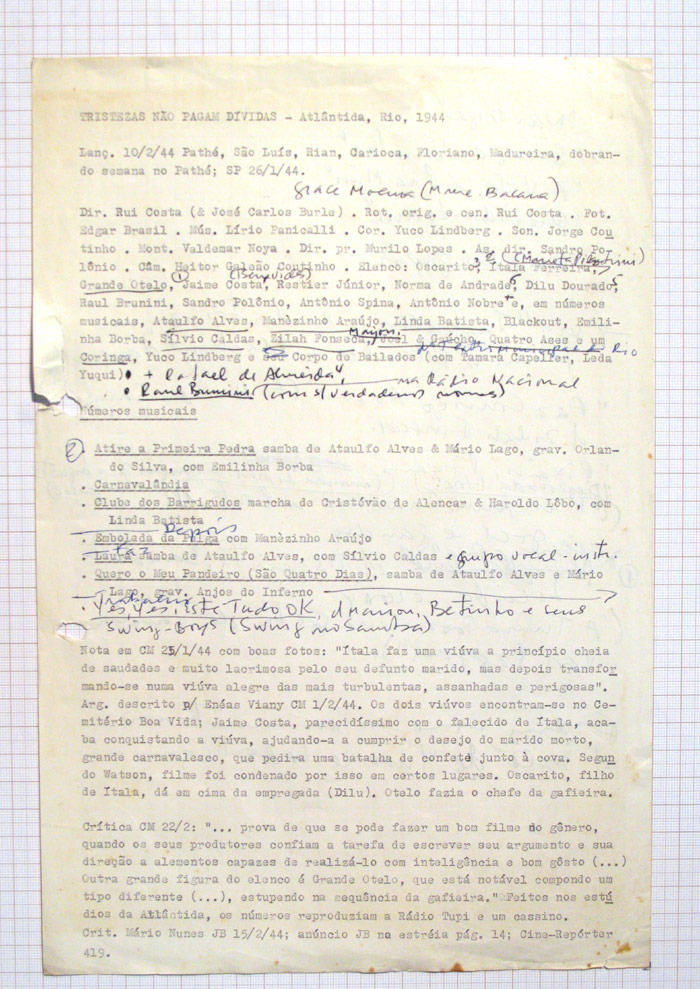 TRISTEZAS NÃO PAGAM DÍVIDAS - Atlântida, Rio, 1944
Lanç. 10/2/44 Pathé, São Luís, Rian, Carioca, Floriano, Madureira, dobran-
do semana no Pathé; SP 26/1/44.
Grace Moema (Mme. Bacana)
Dir. Rui Costa (& José Carlos Burle) . Rot. orig. e cen. Rui Costa . Fot.
Edgar Brasil . Mús. Lírio Panicalli . Cor. Yuco Lindberg . Son. Jorge Cou
tinho . Mont. Valdemar Noya . Dir. pr. Murilo Lopes . As. dir. Sandro Po-
lônio . Câm. Heitor Galeão Coutinho . Elenco: Oscarito, Ítala Ferreira,
(1) (Benevides)
Grande Otelo, Jaime Costa, Restier Júnior, Norma de Andrade, Dilu Dourado,
Raul Brunini, Sandro Polônio, Antônio Spina, Antônio Nobre e, em números
musicais, Ataulfo Alves, Manèzinho Araújo, Linda Batista, Blackout, Emili-
Marjon,
nha Borba, Sílvio Caldas, Zilah Fonseca, Joel & Gaúcho, Quatro Ases e um
Coringa, Yuco Lindberg e seu Corpo de Bailados (com Tamara Capeller, Leda
Yuqui) • + Rafael de Almeida, na Rádio Nacional
• Raul Brunini (com s/ verdadeiros nomes)
Números musicais
2
. Atire a Primeira Pedra samba de Ataulfo Alves & Mário Lago, grav. Orlan-
do Silva, com Emilinha Borba
. Carnavalândia
. Clube dos Barrigudos marcha de Cristóvão de Alencar & Haroldo Lôbo, com
Linda Batista
Depois
. Embolada da Pulga com Manèzinho Araújo
. Laura samba de Ataulfo Alves, com Sílvio Caldas e grupo vocal-instr.
. Quero o Meu Pandeiro (São Quatro Dias), samba de Ataulfo Alves e Mário
Lago, grav. Anjos do Inferno
. Yes, Yes, Está Tudo OK, d Marjon, Betinho e seus
Swing-Boys (Swing no Samba)
Nota em CM 25/1/44 com boas fotos: "Ítala faz uma viúva a princípio cheia
de saudades e muito lacrimosa pelo seu defunto marido, mas depois transfor
mando-se numa viúva alegre das mais turbulentas, assanhadas e perigosas".
Arg. descrito p/ Enéas Viany CM 1/2/44. Os dois viúvos encontram-se no Ce-
mitério Boa Vida; Jaime Costa, parecidíssimo com o falecido de Ítala, aca-
ba conquistando a viúva, ajudando-a a cumprir o desejo do marido morto,
grande carnavalesco, que pedira uma batalha de confete junto à cova. Segun
do Watson, filme foi condenado por isso em certos lugares. Oscarito, filho
de Ítala, dá em cima da empregada (Dilu). Otelo fazia o chefe da gafieira.
Crítica CM 22/2: "... prova de que se pode fazer um bom filme do gênero,
quando os seus produtores confiam a tarefa de escrever seu argumento e sua
direção a alementos capazes de realizá-lo com inteligência e bom gôsto (...)
Outra grande figura do elenco é Grande Otelo, que está notável compondo um
tipo diferente (...), estupendo na sequência da gafieira." Feitos nos estú
dios da Atlântida, os números reproduziam a Rádio Tupi e um cassino.
Crit. Mário Nunes JB 15/2/44; anúncio JB na estréia pág. 14; Cine-Repórter
419.